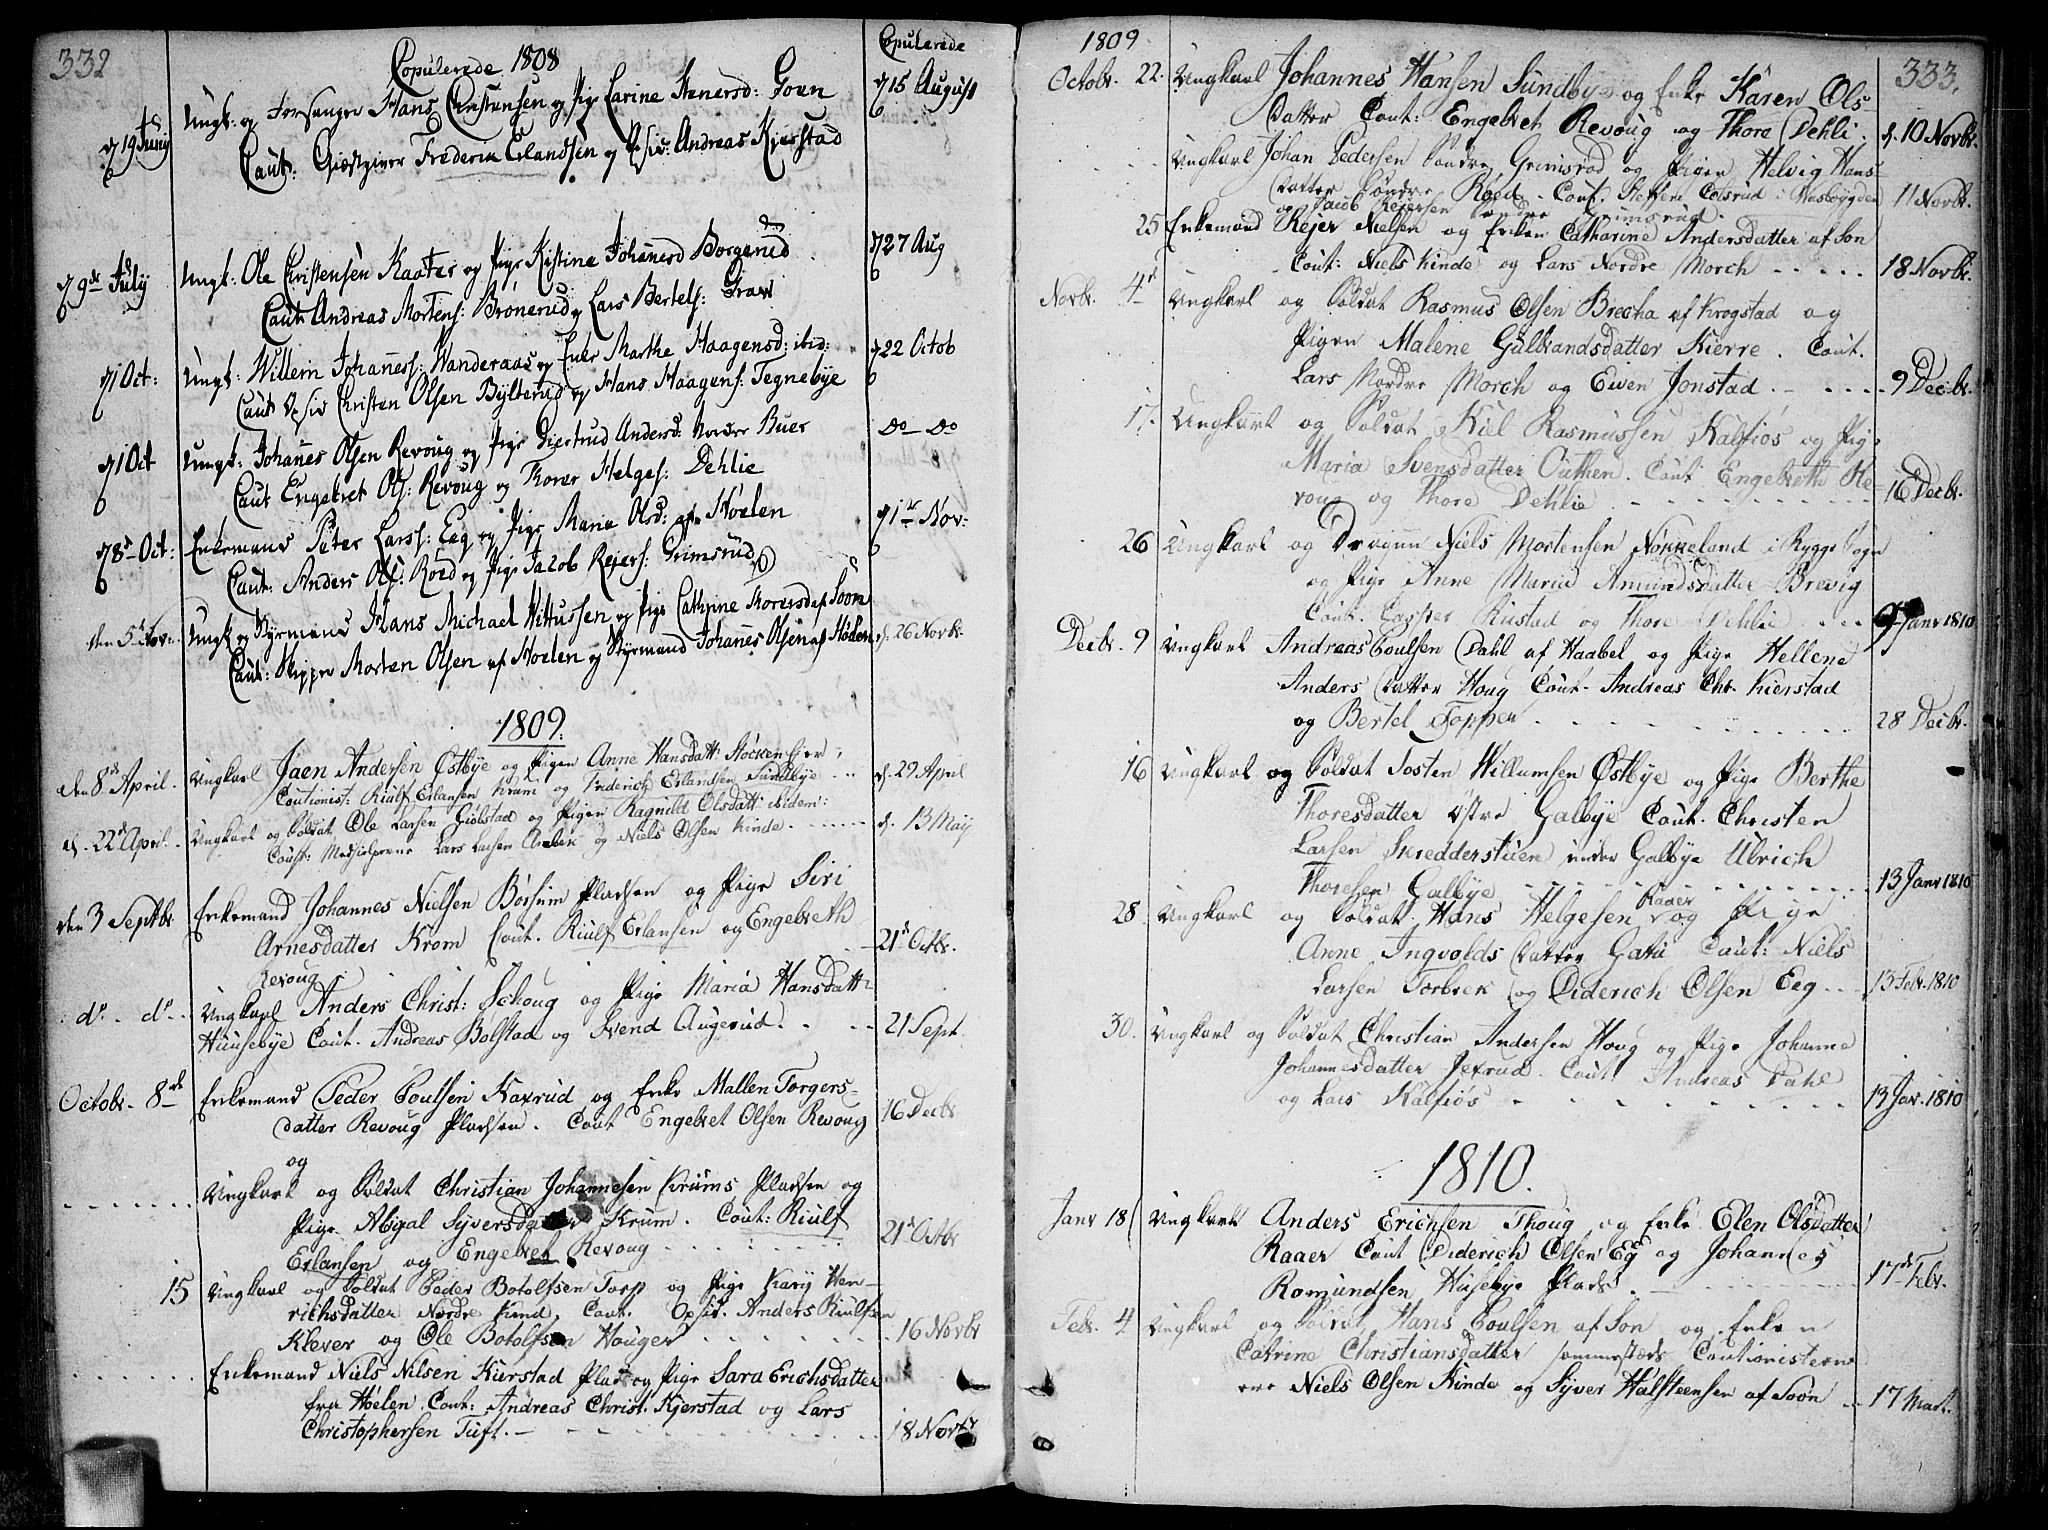 332
Copulerede 1808
Copulerede
d 19 Juny Ungk: og Forsanger Hans Christensen og Pige Carine Stenersd: Goen d 15 August
Caut: Giestgiver Frederik Erlandsen og Andreas Kierstad
d 9de July Ungk: Ole Christensen Kaater og Pige Kistine Johanesd Borgerud d 27 Aug
Caut Andreas Mortens: Brønerud og Lars Bertels: Grav
d 1 Oct: Ungk: Willem Johaness: Wanderaas og Enke Marthe Haagensd: ibid: d 22 Octob
Caut Christen Olsen Bylterud og Hans Haagens: Tegnebye
d 1 Oct Ungk: Johanes Olsen Revoug og Pige Giertrud Andersd: Nordre Buer Do Do
Caut Engebret Ols: Revoug og Torer Helges: Dehlie
d 8de Oct: Enkemand Peter Larss: Eeg og Pige Maria Olsd: af Hoelen d 1ste Nov:
Caut: Anders Ols: Roed og Jacob Rejers: Grimsrud
den 5t Nov: Ungk og Styrmand Hans Michael Vittussen og Pige Cathrine Thoresd af Soon d. 26 Novbr.
Caut: Skipper Morten Olsen af Hoelen og Styrmand Johanes Olsen af Hølen
1809.
den 8de April. Ungkarl Jaen Andersen Østbye og Pigen Anne Hansdatt: Stockenhjer d. 29 April
Coutionist: Riulf Erlansen Krum og Friderich Erlandsen Sundbye
d. 22d April. Ungkarl og Soldat Ole Larsen Giølstad og Pigen Ragnild Olsdatt: ibidem: d. 13 May
Caust: Lars Larsen og Niels Olsen Kinde
den 3 Septbr Enkemand Johannes Nielsen Børsum Pladsen og Pige Siri
Arnesdatter Krom Cout. Riulf Erlansen og Engebreth 21d Octbr.
Revoug
do. do. Ungkarl Anders Christ: Schoug og Pige Maria Hansdatt:
Huusebye Cout. Andreas Bolstad og Svend Augerud. 21 Sept.
Octobr. 8de Enkemand Peder Poulsen Kaxrud og Enke Mallen Torgers-
datter Revoug Pladsen. Cout Engebret Olsen Revoug 16 Decbr
og
Ungkarl og Soldat Christian Johannesen Krums Pladsen og
Pige Abigal Syversdatter Krum. Cout: Riulf
Erlansen og Engebret Revoug 21d Octbr
15 Ungkarl og Soldat Peder Botolfsen Torp og Pige Karij Hen-
richsdatter Nordre Kind. Cout. Opsid. Anders Riulfsen
Klever og Ole Botolfsen Houger 16 Novbr
Enkemand Niels Nilsen Kierstad Plads og Pige Sara Erichsdatter
fra Hølen. Cout: Andreas Christ. Kjerstad og Lars
Christophersen Tuft. 18 Novbr
1809.
333.
Octobr. 22. Ungkarl Johannes Hansen Sundbye og Enke Karen Ols-
Datter Cout: Engebret Revoug og Thore Dehli. d. 10 Novbr.
Ungkarl Johan Pedersen Søndre Grimsrød og Pigen Helvig Hans-
Datter Søndre Røed. Cout. Steffen Colsrud i Waasbøygden 11 Novbr.
og Jacob Reiersen Søndre Grimsrud.
25 Enkemand Rejer Nielsen og Enken Catharine Andersdatter af Son
Cout: Niels Kinde og Lars Nordre Morch 18 Novbr.
Novbr. 4d Ungkarl og Soldat Rasmus Olsen Brecha af Krogstad og
Pigen Malene Gulbrandsdatter Kierre. Cout.
Lars Nordre Morch og Even Jonstad. 9 Decbr.
17. Ungkarl og Soldat Kiel Rasmussen Kalfiøs og Pige
Maria Svensdatter Outhen. Cout Engebreth Re-
voug og Thore Dehlie 16 Decbr.
26 Ungkarl og Dragun Niels Mortensen Nønneland i Rygge Sogn
og Pige Anne Maria Amundsdatter Brevig
Cout. Casper Rustad og Thore Dehlie Janr 1810
Decbr. 9 Ungkarl Andreas Poulsen Dahl af Haabel og Pige Hellene
Anders Datter Houg Cout. Andreas Chr. Kierstad
og Bertel Toppen 28 Decbr.
16 Ungkarl og Soldat Tosten Willumsen Østbye og Pige Berthe
Thoresdatter østre Galbye Cout. Christen
Larsen Skredderstuen under Galbye Ulrich
Thoresen Galbye 13 Janr 1810
28 Ungkarl og Soldat Hans Helgesen Raaer og Pige
Anne Ingvolds Datter Gatu Caut: Niels
Larsen Torbek og Diderich Olsen Eeg 13 Febr. 1810
30. Ungkarl og Soldat Christian Andersen Houg og Pige Johanne
Johannesdatter Jexrud. Cout: Andreas Dahl
og Lars Kalfiøs 13 Jav. 1810
1810.
Janr 18 Ungkarl Anders Erichsen Thoug og Enke Elen Olsdatter
Raaer Cout Diderich Olsen Eg og Johannes
Romundsen Husebye Plads. 17de Febr.
Febr. 4 Ungkarl og Soldat Hans Poulsen af Son og Enken
Catrine Christiansdatter sammesteds Coutionisterne
ere Niels Olsen Kinde og Syver Halsteensen af Soon 17 Mart.